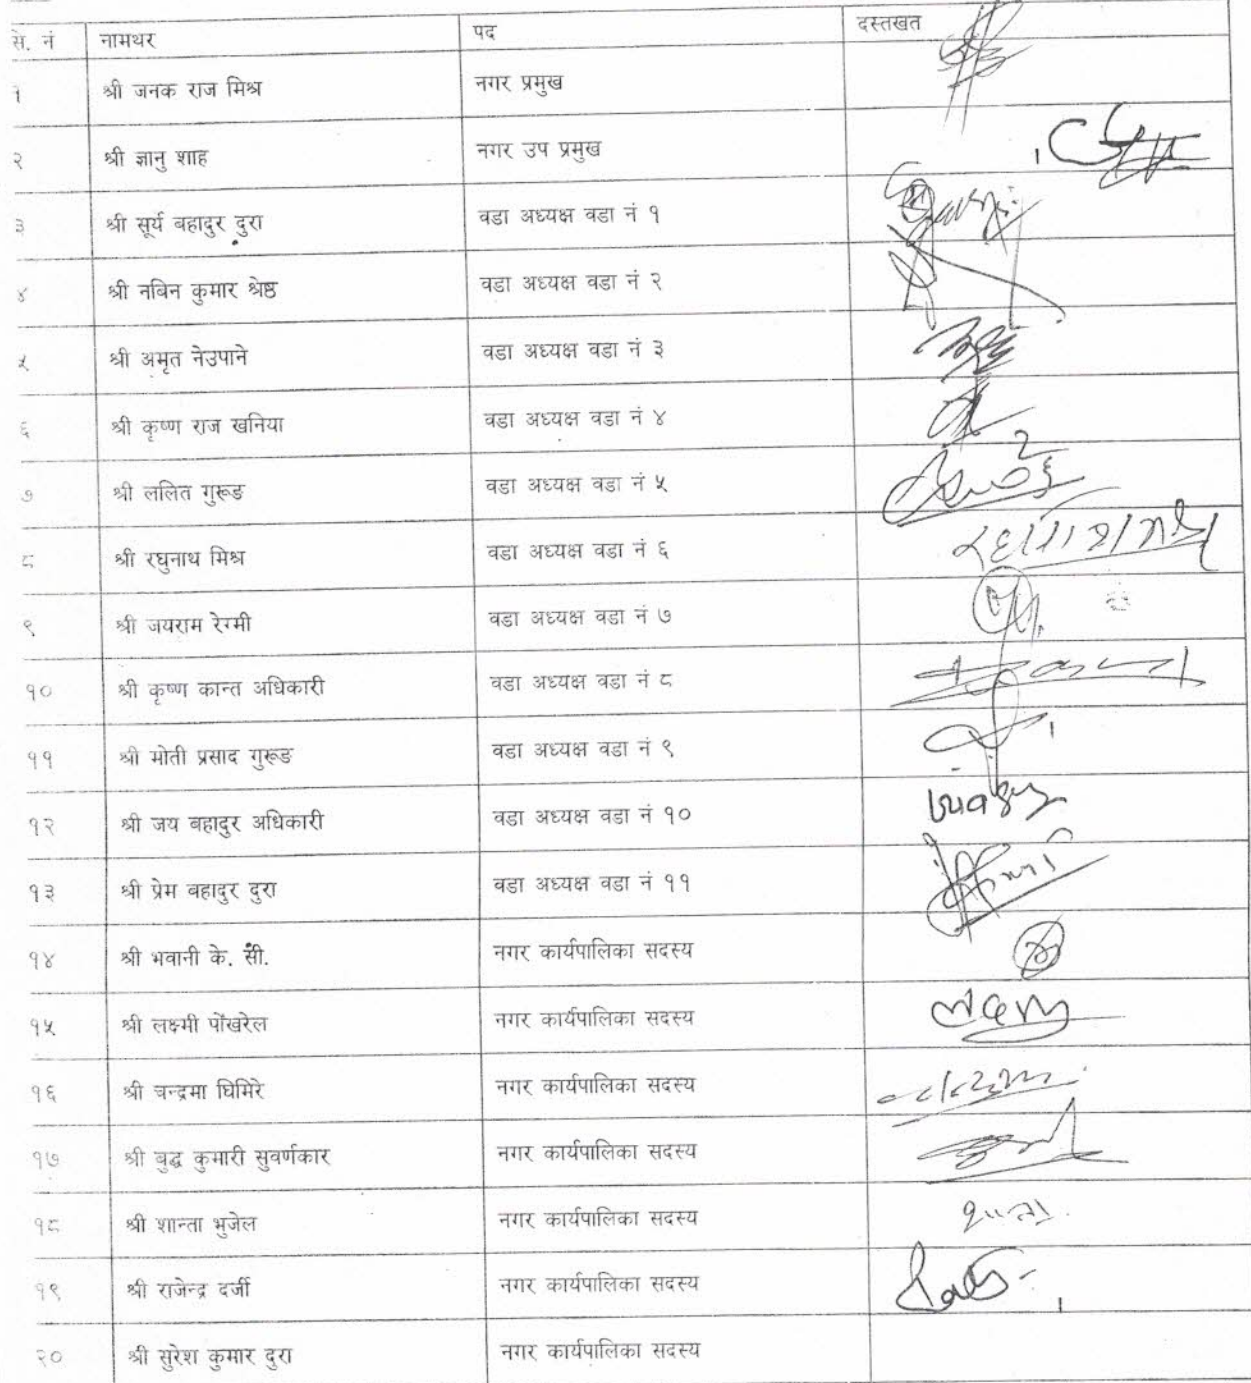 से. नं नामथर पद दस्तखत
१ श्री जनक राज मिश्र नगर प्रमुख
२ श्री ज्ञानु शाह नगर उप प्रमुख
३ श्री सूर्य बहादुर दुरा वडा अध्यक्ष वडा नं १
४ श्री नबिन कुमार श्रेष्ठ वडा अध्यक्ष वडा नं २
५ श्री अमृत नेउपाने वडा अध्यक्ष वडा नं ३
६ श्री कृष्ण राज खनिया वडा अध्यक्ष वडा नं ४
७ श्री ललित गुरूङ वडा अध्यक्ष वडा नं ५
८ श्री रघुनाथ मिश्र वडा अध्यक्ष वडा नं ६
९ श्री जयराम रेग्मी वडा अध्यक्ष वडा नं ७
१० श्री कृष्ण कान्त अधिकारी वडा अध्यक्ष वडा नं ८
११ श्री मोती प्रसाद गुरूङ वडा अध्यक्ष वडा नं ९
१२ श्री जय बहादुर अधिकारी वडा अध्यक्ष वडा नं १०
१३ श्री प्रेम बहादुर दुरा वडा अध्यक्ष वडा नं ११
१४ श्री भवानी के. सी. नगर कार्यपालिका सदस्य
१५ श्री लक्ष्मी पोंखरेल नगर कार्यपालिका सदस्य
१६ श्री चन्द्रमा घिमिरे नगर कार्यपालिका सदस्य
१७ श्री बुद्ध कुमारी सुवर्णकार नगर कार्यपालिका सदस्य
१८ श्री शान्ता भुजेल नगर कार्यपालिका सदस्य शान्ता
१९ श्री राजेन्द्र दर्जी नगर कार्यपालिका सदस्य
२० श्री सुरेश कुमार दुरा नगर कार्यपालिका सदस्य